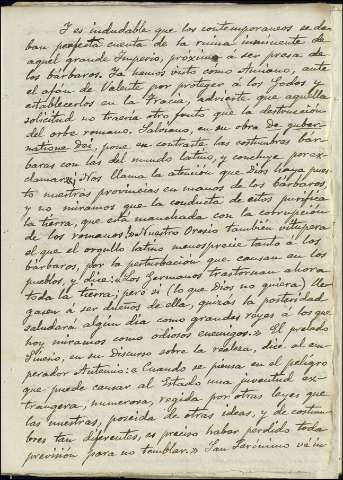 Y es indudable que los contemporaneos se da-
ban perfecta cuenta de la ruina inminente de
aquel grande Imperio, próximo á ser presa de
los bárbaros. Ya hemos visto como Amiano, ante
el afan de Valente por proteger á los Godos y
establecerlos en la Tracia, advierte que aquella
solicitud no traeria otro fruto que la destruccion
del orbe romano. Salviano, en su obra De guber-
natione Dei, pone en contraste las costumbres bár-
baras con las del mundo latino, y concluye por ex-
clamar: «Nos llama la atencion que Dios haya pues-
to nuestras provincias en manos de los bárbaros,
y no miramos que la conducta de estos purifica
la tierra, que está manchada con la corrupcion
de los romanos.» Nuestro Orosio tambien vitupera
el que el orgullo latino menosprecie tanto á los
bárbaros, por la perturbacion que causan en los
pueblos, y dice: «Los Germanos trastornan ahora
toda la tierra; pero si (lo que Dios no quiera) lle-
gasen á ser dueños de ella, quizás la posteridad
saludará algun dia como grandes reyes á los que
hoy miramos como odiosos enemigos.» El prelado
Sinesio, en su Discurso sobre la realeza, dice al em-
perador Arcadio: «Cuando se piensa en el peligro
que puede causar al Estado una juventud ex-
trangera, numerosa, regida por otras leyes que
las nuestras, poseida de otras ideas, y de costum-
bres tan diferentes, es preciso haber perdido toda
prevision para no temblar.» San Jerónimo veia